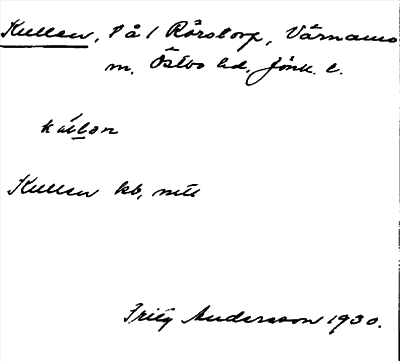 Kullen, l å l Rörstorp, Värnamo
m, Östbo hd, Jönk. l.
kúlən
Kullen kb, mtl
Fritz Andersson 1930.